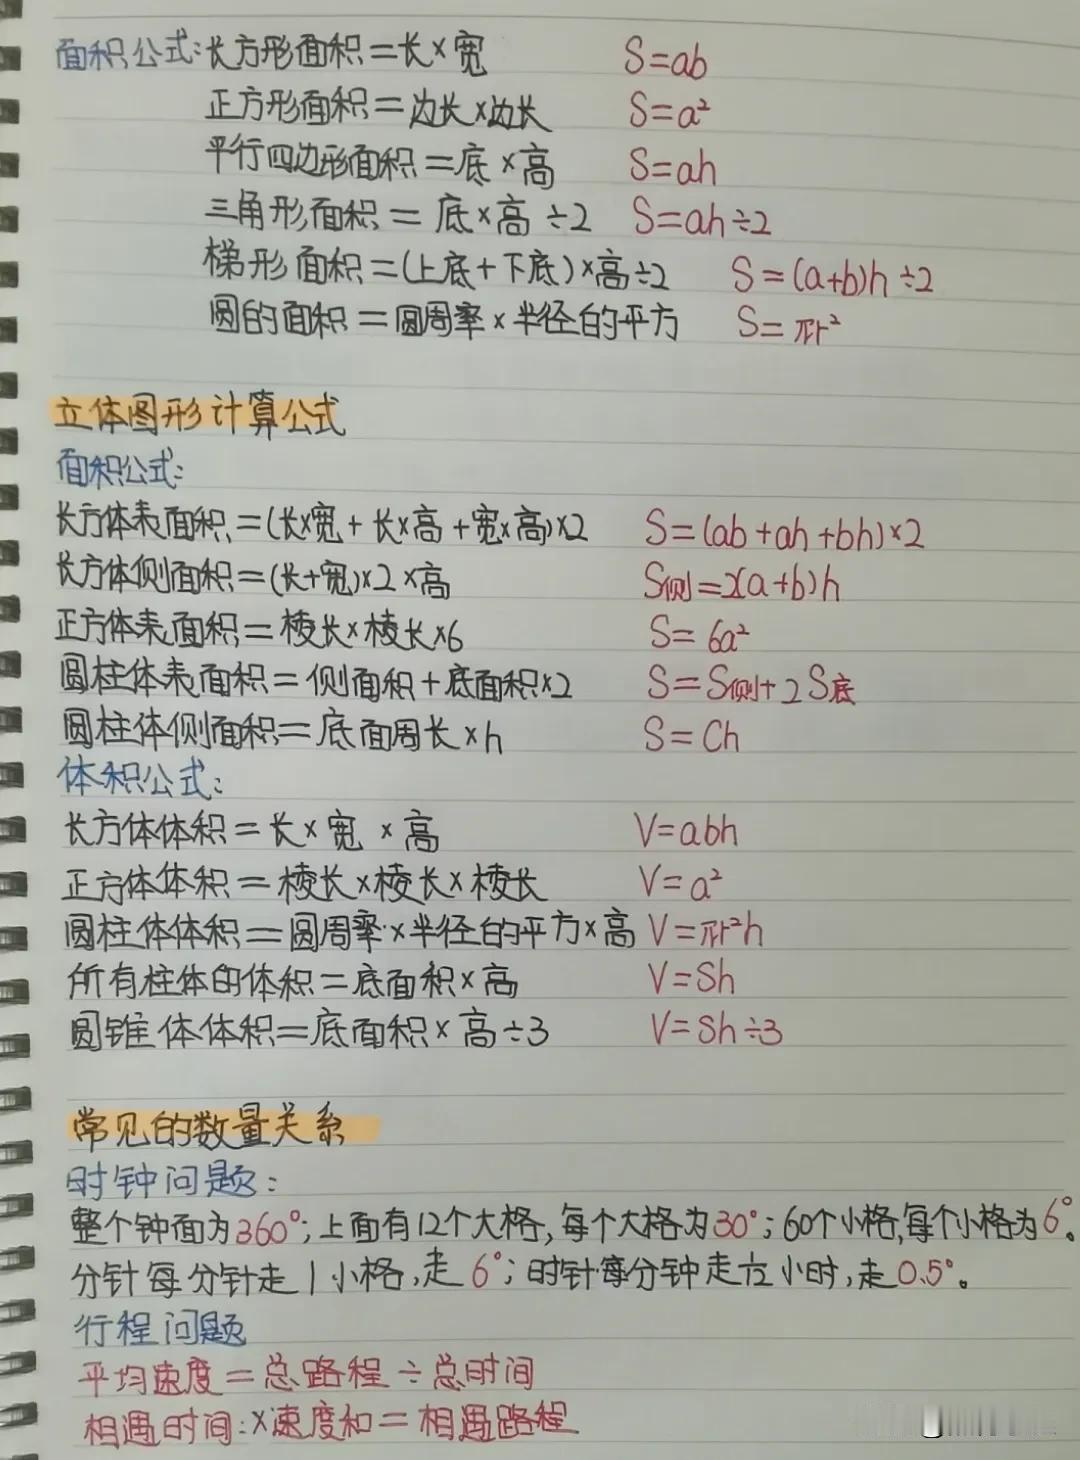 面积公式:长方形面积=长×宽 S=ab
正方形面积=边长×边长 S=a²
平行四边形面积=底×高 S=ah
三角形面积=底×高÷2 S=ah÷2
梯形面积=(上底+下底)×高÷2 S=(a+b)h÷2
圆的面积=圆周率×半径的平方 S=πr²
立体图形计算公式
面积公式:
长方体表面积=(长×宽+长×高+宽×高)×2 S=(ab+ah+bh)×2
长方体侧面积=(长+宽)×2×高 S侧=2(a+b)h
正方体表面积=棱长×棱长×6 S=6a²
圆柱体表面积=侧面积+底面积×2 S=S侧+2S底
圆柱体侧面积=底面周长×h S=Ch
体积公式:
长方体体积=长×宽×高 V=abh
正方体体积=棱长×棱长×棱长 V=a²
圆柱体体积=圆周率×半径的平方×高 V=πr²h
所有柱体的体积=底面积×高 V=Sh
圆锥体体积=底面积×高÷3 V=Sh÷3
常见的数量关系
时钟问题:
整个钟面为360°;上面有12个大格,每个大格为30°;60个小格,每个小格为6°。
分针每分针走1小格,走6°;时针每分钟走 小时,走0.5°。
行程问题
平均速度=总路程÷总时间
相遇时间:×速度和=相遇路程